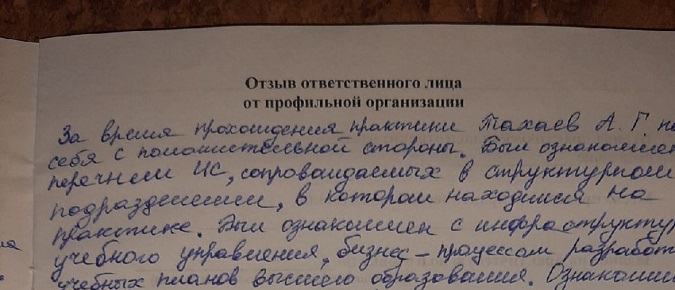 Отзыв ответственного лица
от профильной организации
За время прохождения практики Тахаев А. Г. по
себя с положительной стороны. Был ознакомлен
перечнем ИС, сопровождаемых в структурном
подразделении, в котором находился на
практике. Был ознакомлен с инфраструкту
учебного управления, бизнес-процессом разработ
учебных планов высшего образования. Ознакоми